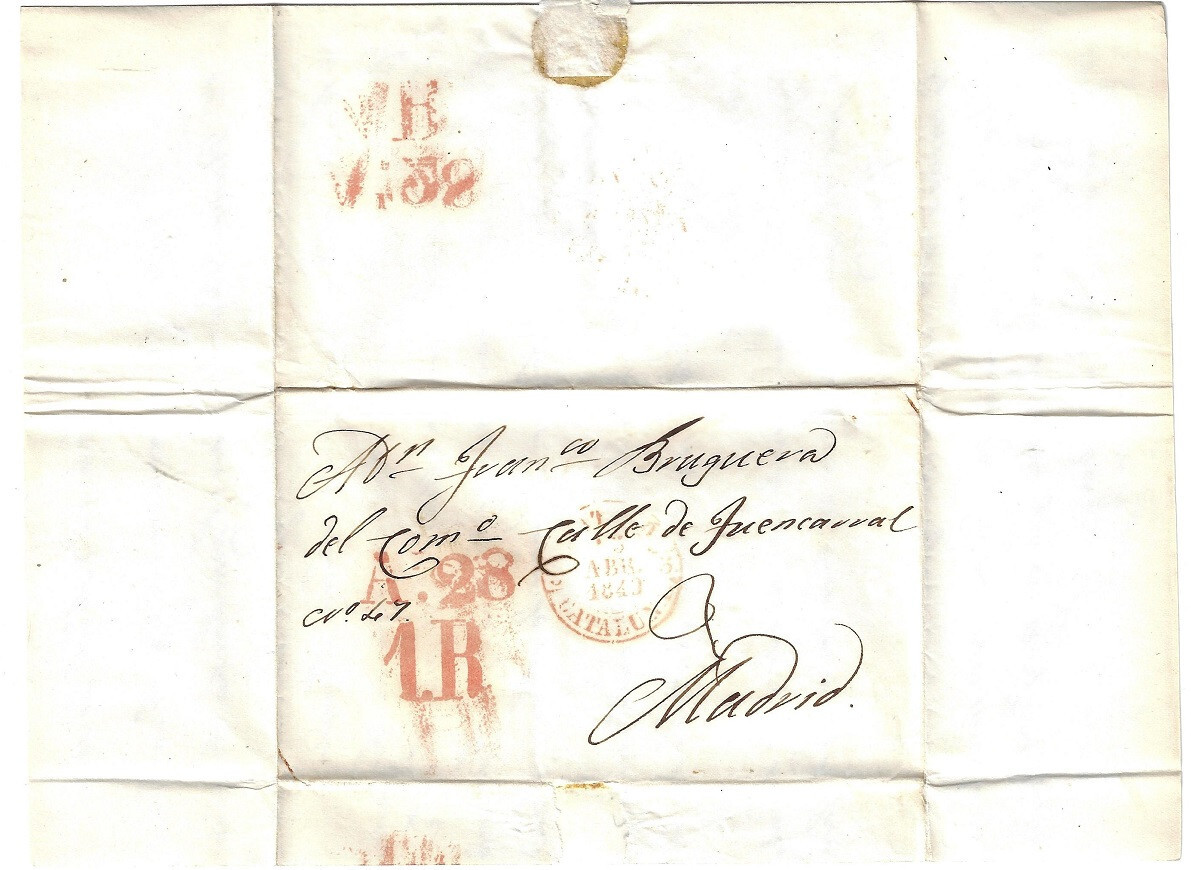 A Dn Franco Bruguera
del Como Calle de Fuencarral
No 47.
Madrid.
A. 28
1R
ABR.
1849
CATALU